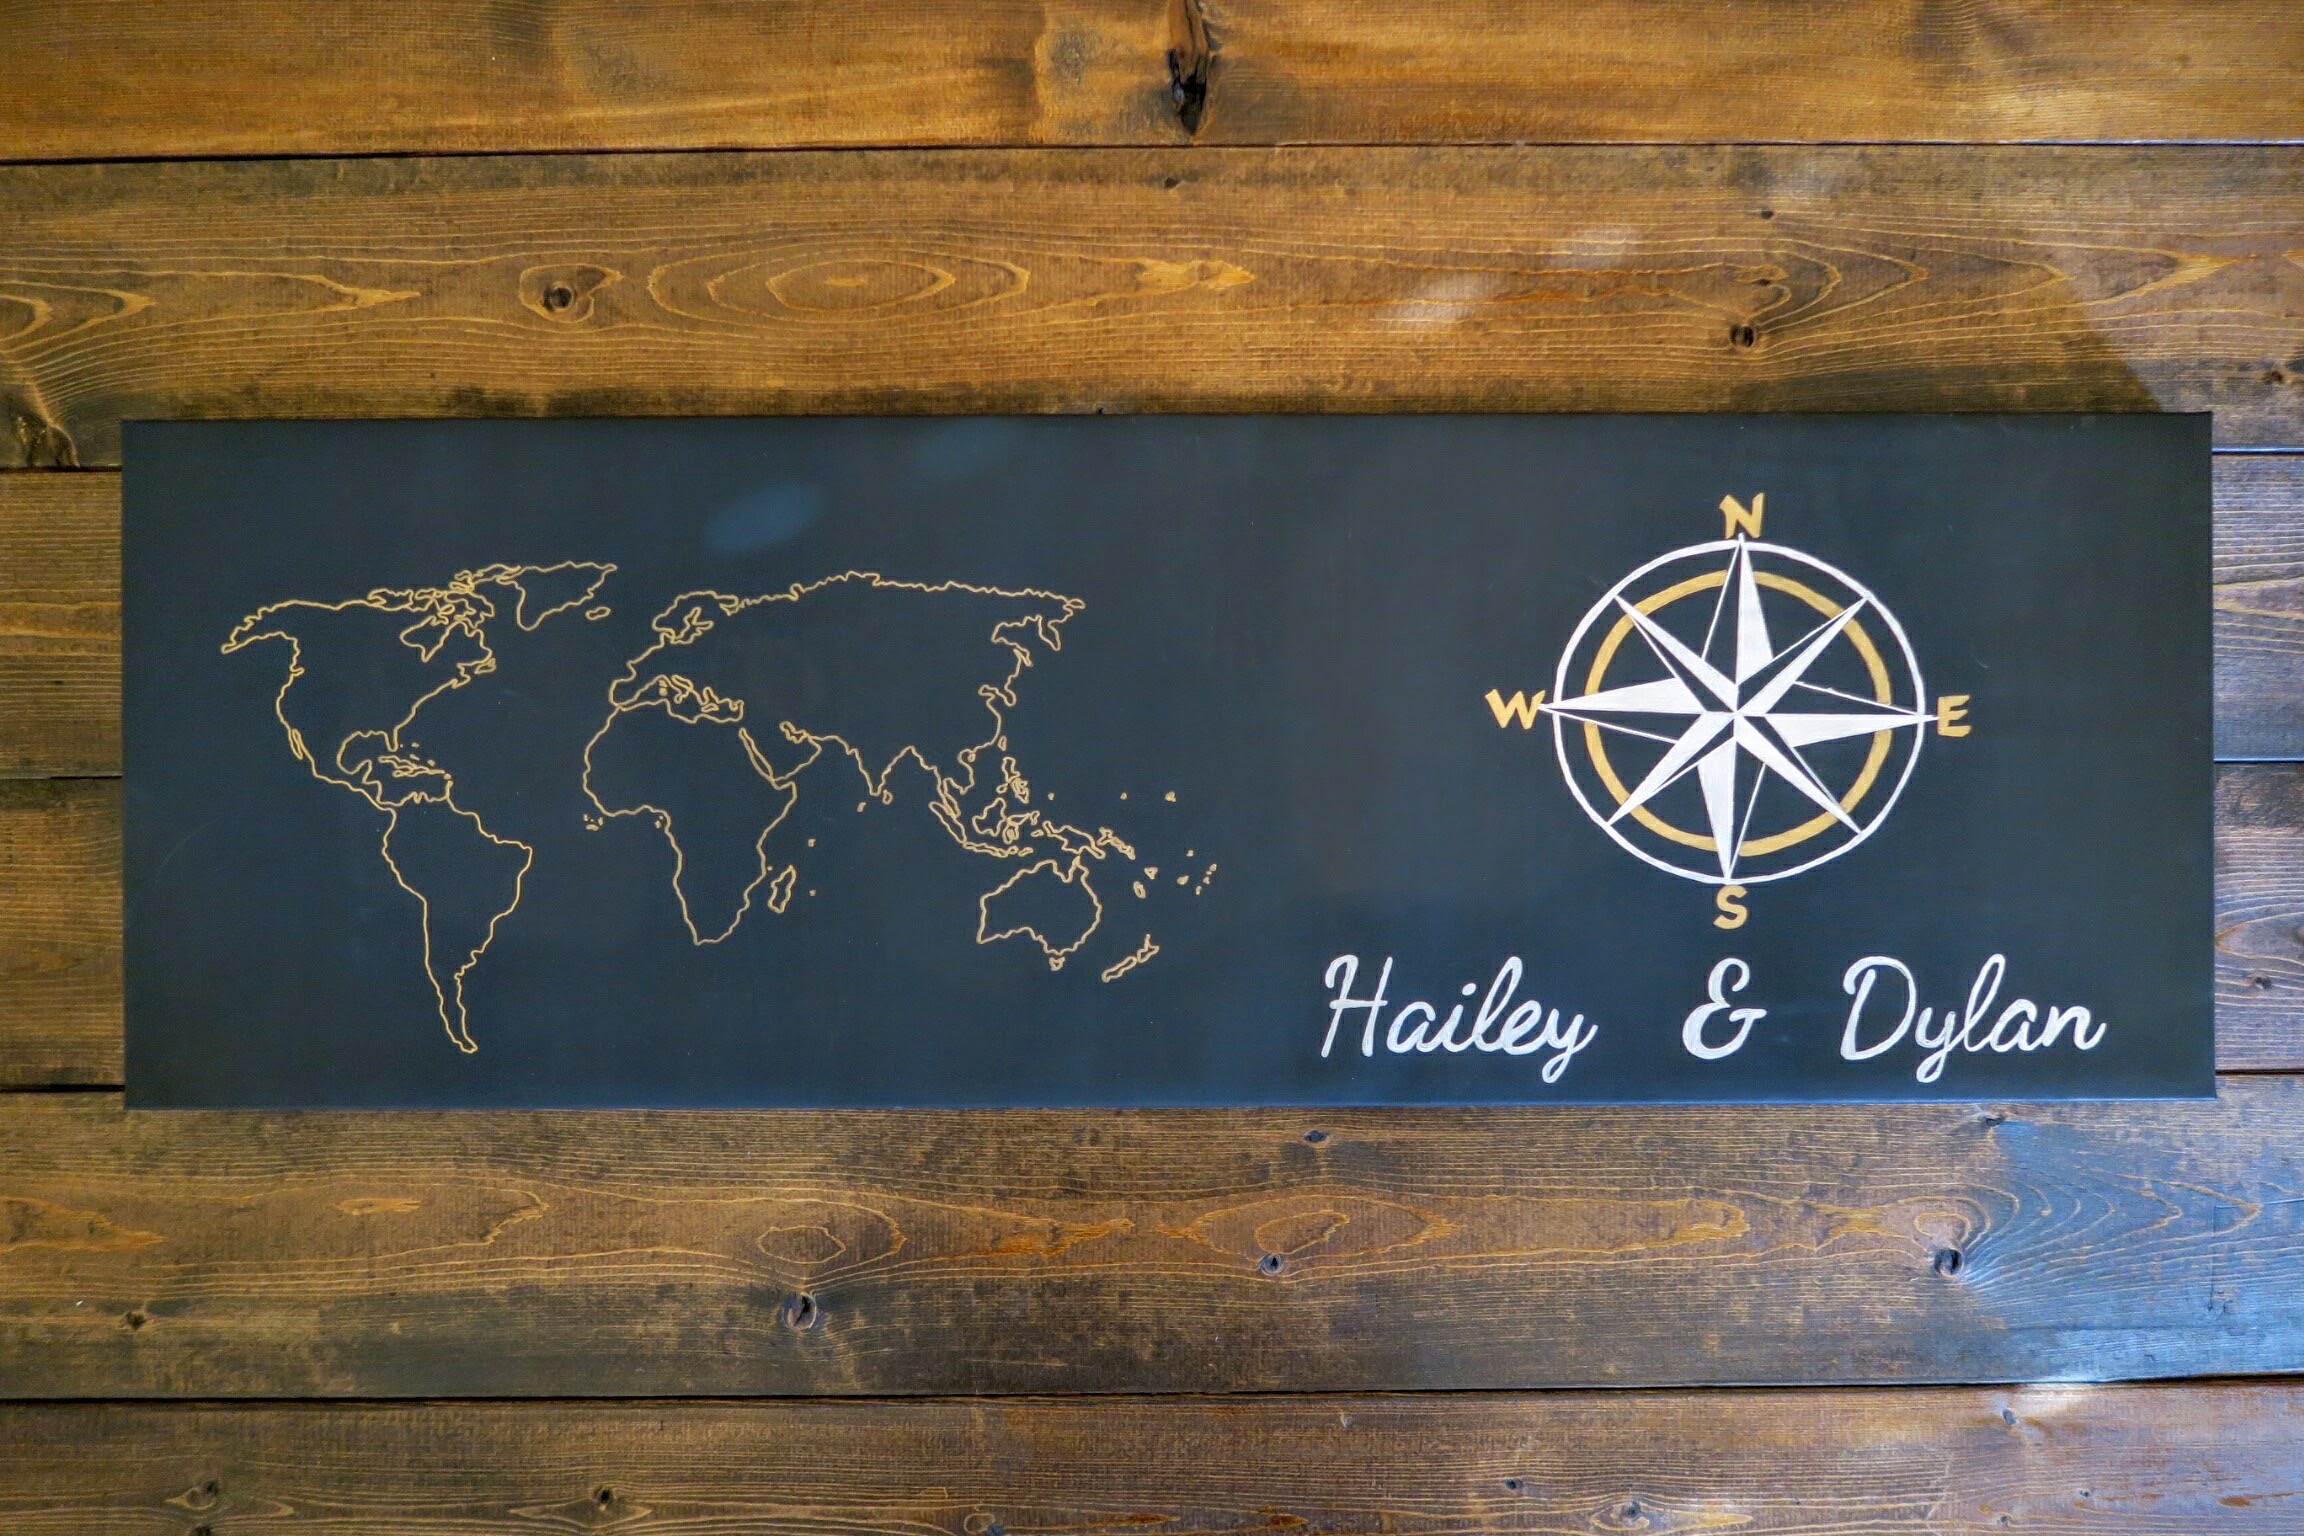 N
W E
S
Hailey & Dylan